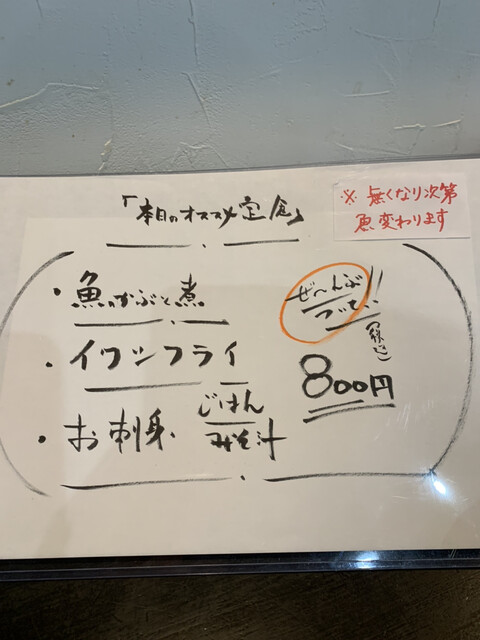 「本日のオススメ定食」
※ 無くなり次第
魚変わります
・魚のかぶと煮
・イワシフライ
・お刺身
ごはん
みそ汁
ぜ～んぶ
つって!!
(税込)
800円